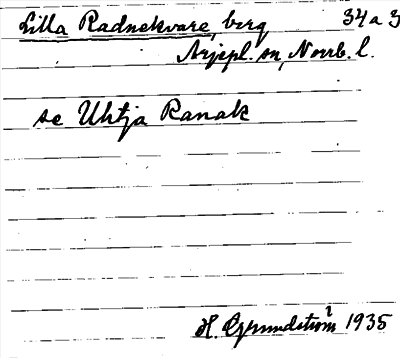 Lilla Radnekvare, berg 34 a 3
Arjepl. sn, Norrb. l.
se Uhtja Ranak
H. Grundström 1935